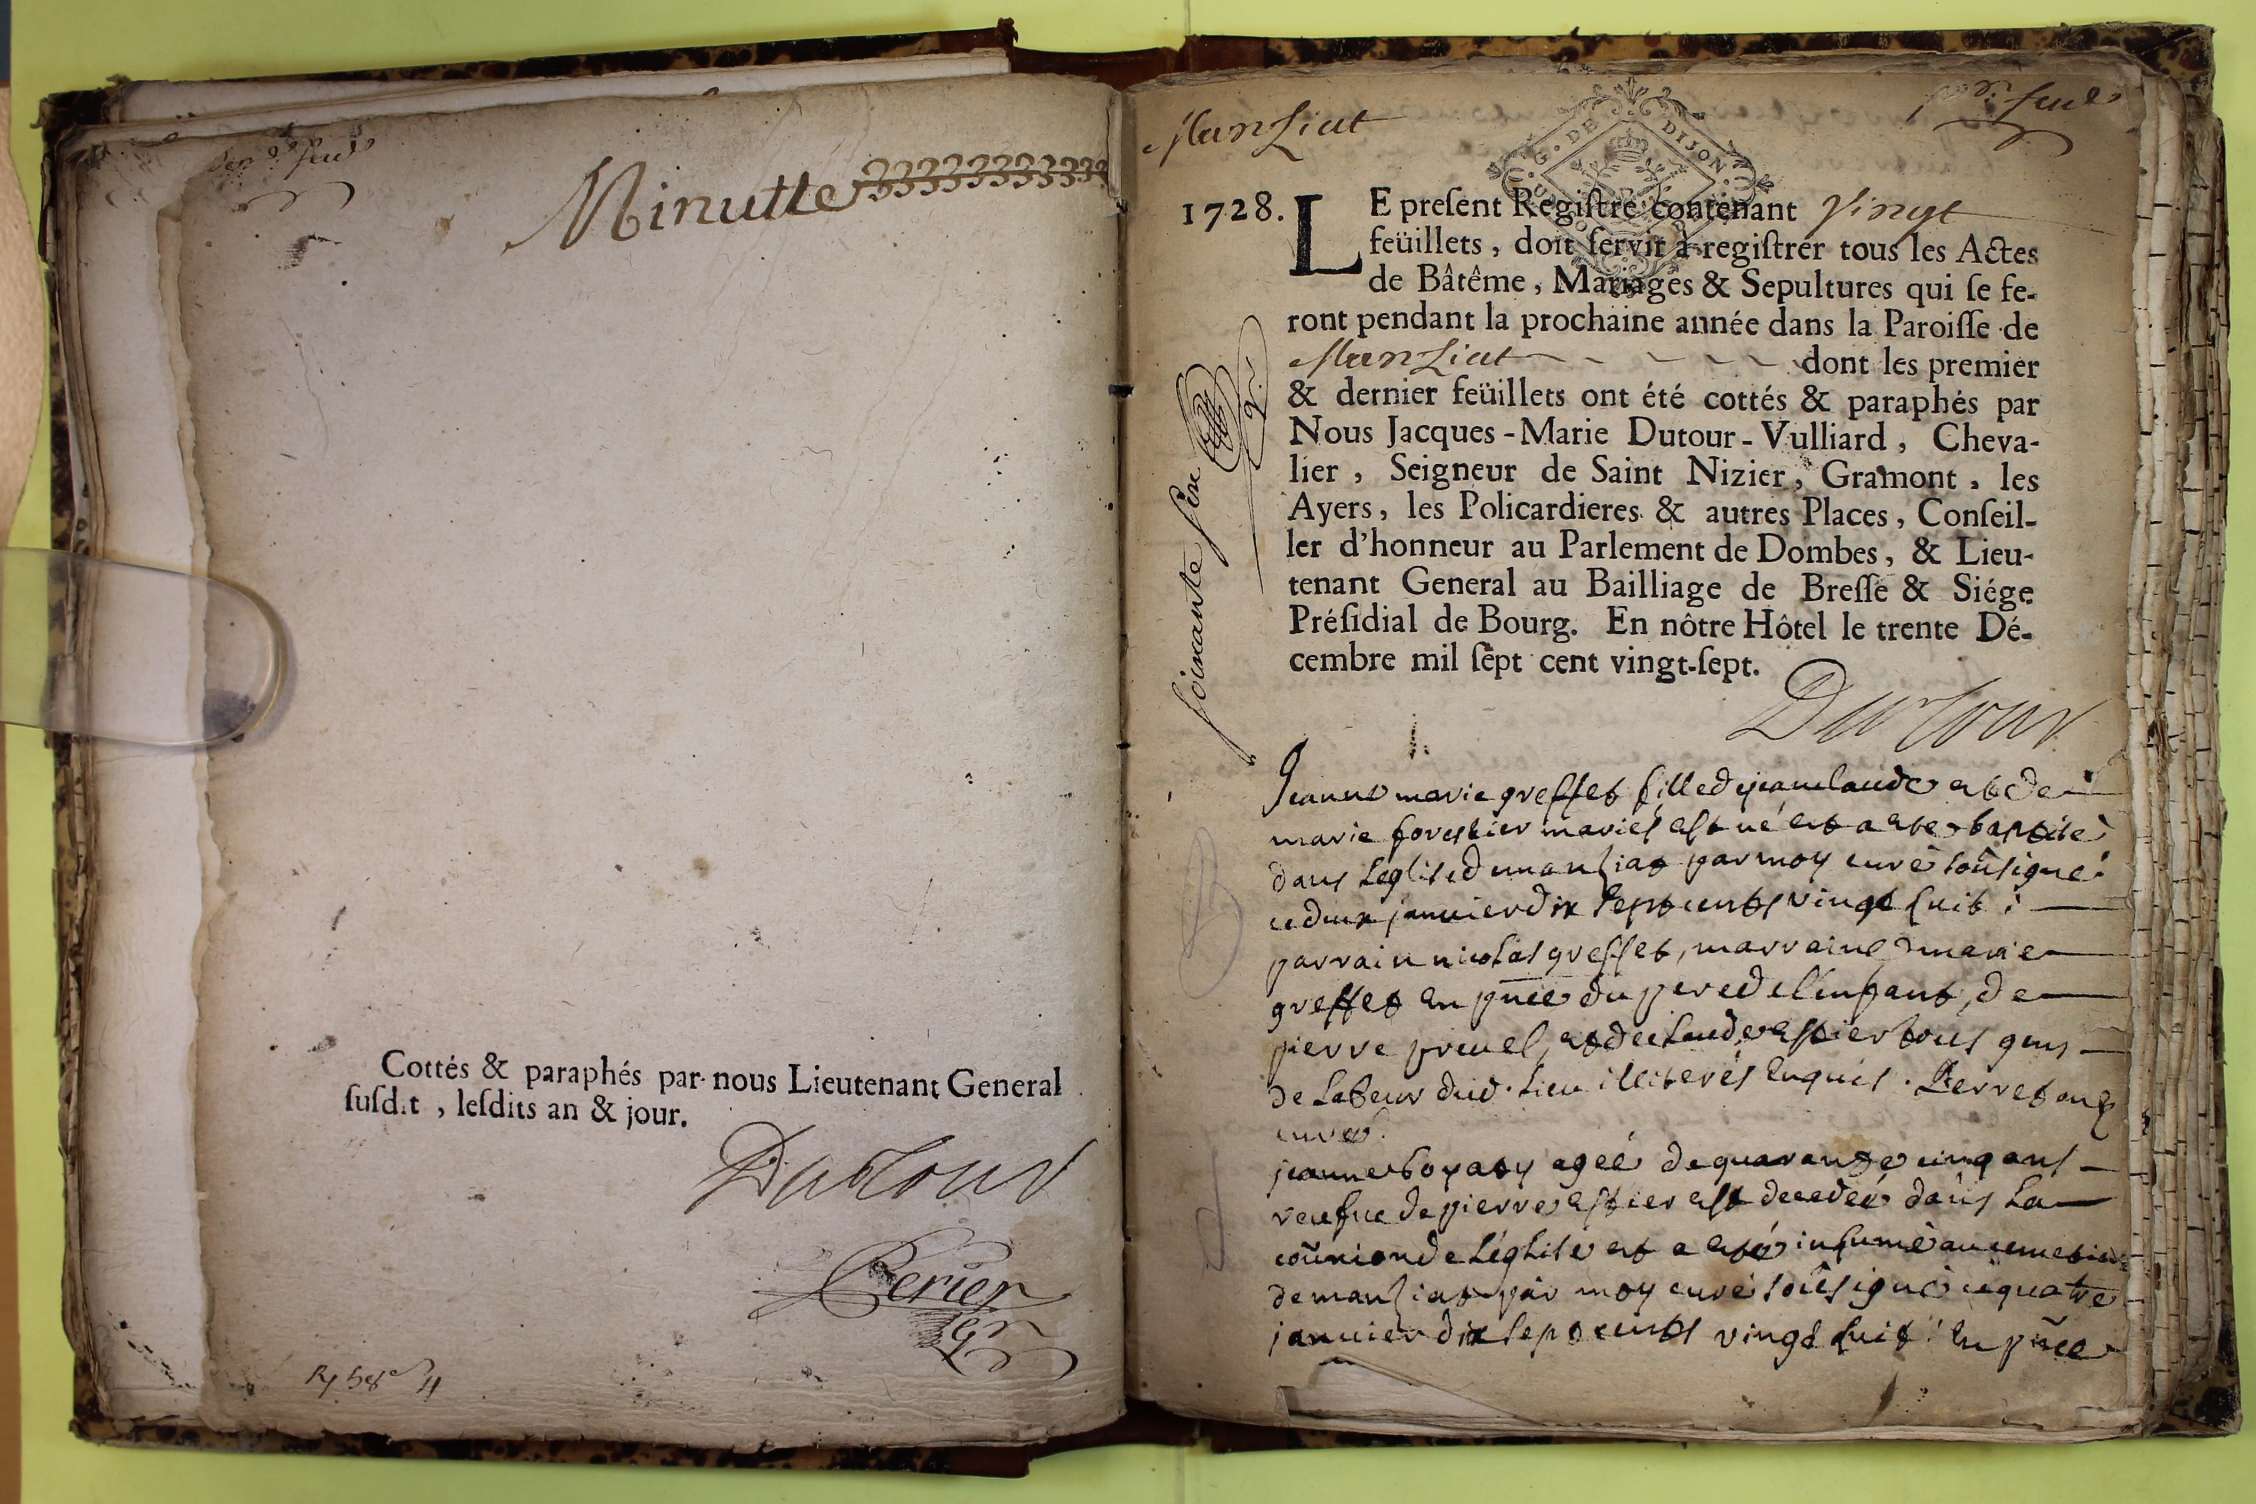 Minutte
Cottés & paraphés par nous Lieutenant General
susd.t, lesdits an & jour.
Dutour
Perier
Manziat
feuil
G. DE DIJON
1728. LE present Registre contenant vingt
feüillets, doit servir à registrer tous les Actes
de Bâtême, Mariages & Sepultures qui se fe-
ront pendant la prochaine année dans la Paroisse de
Manziat dont les premier
& dernier feüillets ont été cottés & paraphés par
Nous Jacques-Marie Dutour-Vulliard, Cheva-
lier, Seigneur de Saint Nizier, Gramont, les
Ayers, les Policardieres & autres Places, Conseil-
ler d'honneur au Parlement de Dombes, & Lieu-
tenant General au Bailliage de Bresse & Siége
Présidial de Bourg. En nôtre Hôtel le trente Dé-
cembre mil sept cent vingt-sept.
Dutour
soixante sixe
Jeanne marie greffet fille de jean claude et de
marie forestier mariés est né et a ete baptisé
dans leglise de manziat par moy curé soûsigné
ce deux janvier dix sept cents vingt huit :
parrain nicolas greffet, marraine marie
greffet en pnce du pere de l'enfant, de
pierre pruel, et de claude astier tous gens
de labeur dud. lieu illiterés enquis. Perret
curé.
jeanne boyaty agée de quarante cinq ans
veufue de pierre astier est decedeé dans la
coûnion de l'église et a eté inhumé au cemetiere
de manziat par moy curé soûsigné ce quatre
janvier dix sept cents vingt huit : en pnce